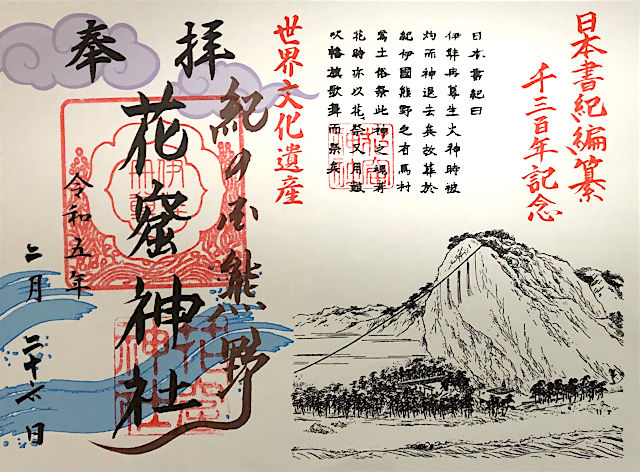 日本書紀編纂
千三百年記念
日本書紀曰
伊弉冉尊生火神時被
灼而神退去矣故葬於
紀伊國熊野之有馬村
焉土俗祭此神之魂者
花時亦以花祭又用鼓
吹幡旗歌舞而祭矣
世界文化遺産
奉拝
紀の国熊野
花窟神社
令和五年
二月二十六日